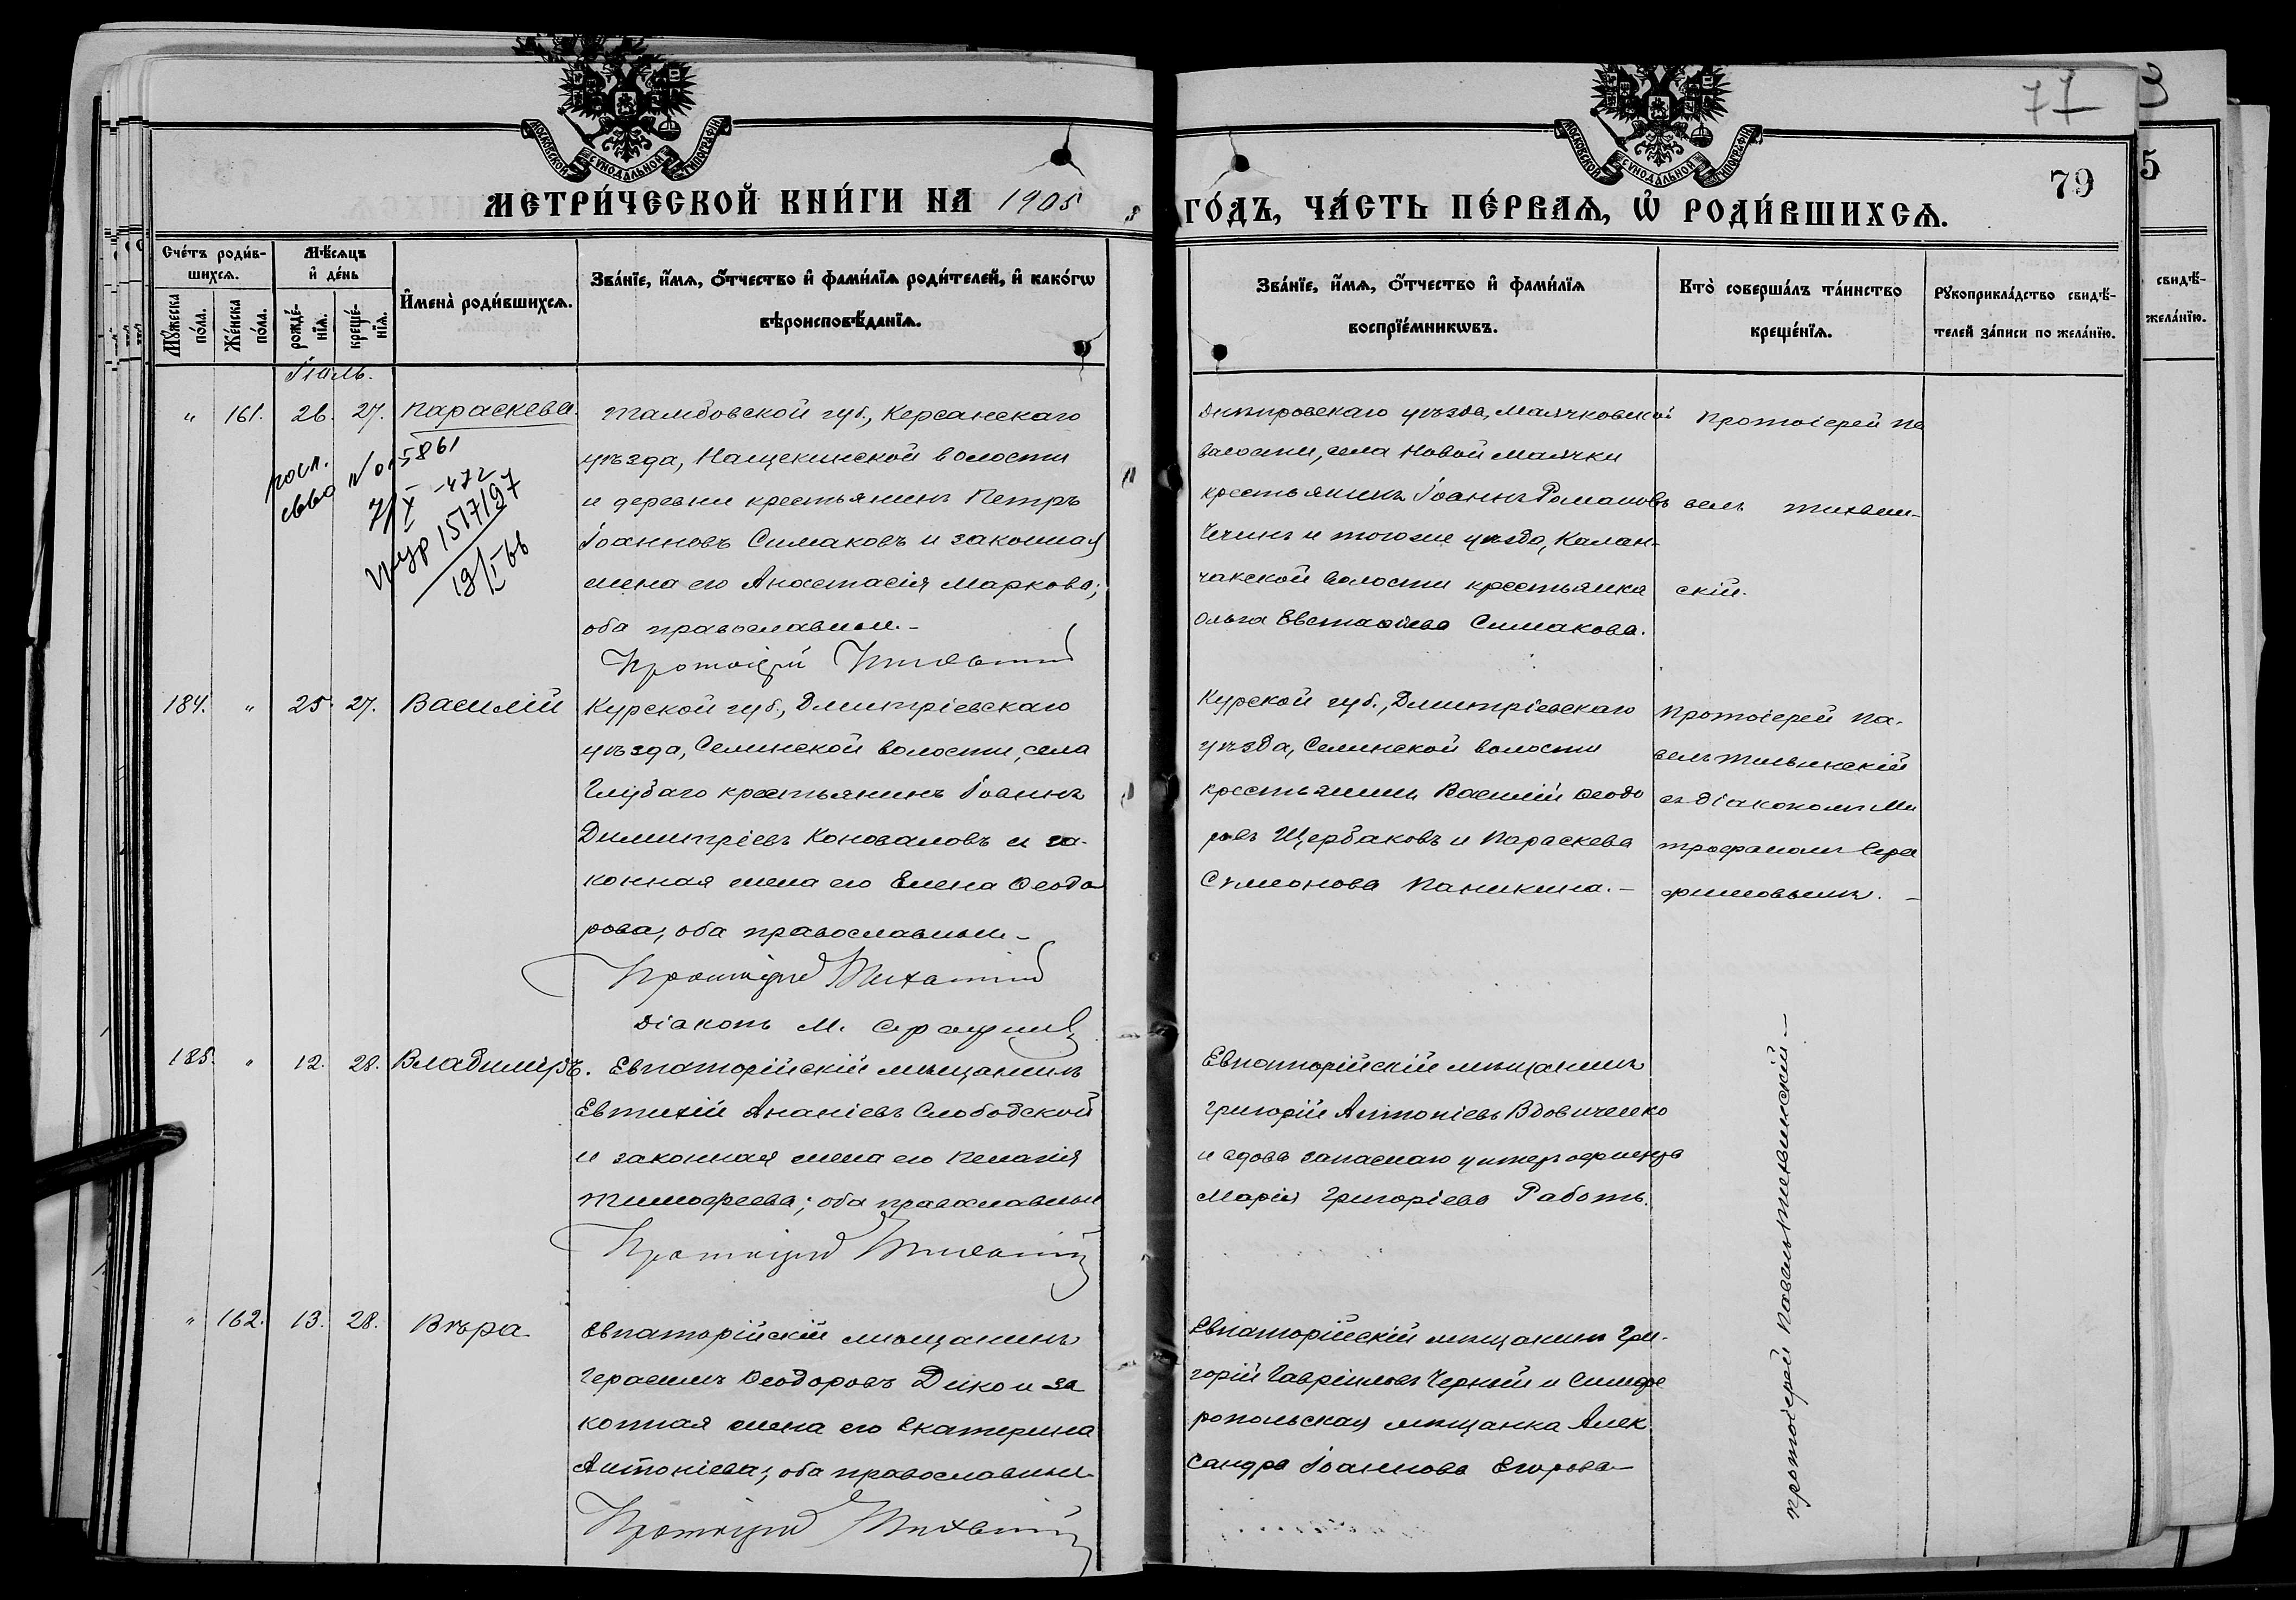 77
МОСКОВСКОЙ СѴНОДАЛЬНОЙ ТИПОГРАФІИ
МОСКОВСКОЙ СѴНОДАЛЬНОЙ ТИПОГРАФІИ
79
5
МЕТРИ́ЧЕСКОЙ КНИ́ГИ НА 1905
ГО́ДЪ, ЧА́СТЬ ПЕ́РВАѦ, Ѡ҆ РОДИ́ВШИХСѦ.
Сче́тъ роди́в-
шихсѧ.
Мꙋ́жеска по́ла.
Же́нска по́ла.
Мѣ́сѧцъ
и҆ де́нь
рожде́-нїѧ.
креще́-нїѧ.
И҆мена̀ роди́вшихсѧ.
Зва́нїе, и҆́мѧ, ѻ҆́тчество и҆ фами́лїѧ роди́телей, и҆ како́гѡ
вѣроисповѣ́данїѧ.
Зва́нїе, и҆́мѧ, ѻ҆́тчество и҆ фами́лїѧ
воспрїе́мникѡвъ.
Кто̀ соверша́лъ та́инство
креще́нїѧ.
Рꙋкоприкла́дство свидѣ́-
телей за́писи по жела́нїю.
свидѣ́-
жела́нїю.
Іюль.
" 161. 26. 27. Параскева.
Тамбовской губ., Керсанскаго
уѣзда, Нащекинской волости
и деревни крестьянинъ Петръ
Іоанновъ Симаковъ и законная
жена его Анастасія Маркова;
оба православные.-
Протоіерей Тихвинскій
№ 05861
7/X -472
151719
19/I-66
Днѣпровскаго уѣзда, Маячковской
волости, села Новой Маячки
крестьянинъ Іоаннъ Романовъ
Чечинъ и того же уѣзда, Калан-
чакской волости крестьянка
Ольга Евстафіева Симакова.
Протоіерей Па
велъ Тихвин-
скій.
184. " 25. 27. Василій
Курской губ., Дмитріевскаго
уѣзда, Селинской волости, села
крестьянинъ Іоаннъ
Димитріевъ Коноваловъ и за-
конная жена его Елена Ѳеодо
рова; оба православные-
Протоіерей Тихвинскій
Діаконъ М. Серафимовъ
Курской губ., Дмитріевскаго
уѣзда, Селинской волости
крестьяне Василій Ѳеодо
ровъ Щербаковъ и Параскева
Сѵмеонова Паникина.-
Протоіерей Па-
велъ Тихвинскій
съ діакономъ Ми
трофаномъ Сера
фимовымъ.-
185. " 12. 28. Владиміръ.
Евпаторійскій мѣщанинъ
Евтихій Ананіевъ Слободской
и законная жена его Пелагія
Тимофеева; оба православные
Протоіерей Тихвинскій
Евпаторійскій мѣщанинъ
Григорій Антоніевъ Вдовиченко
и вдова запаснаго унтеръ офицера
Марія Григоріева Работъ.
Протоіерей Павелъ Тихвинскій-
" 162. 13. 28. Вѣра.
Евпаторійскій мѣщанинъ
Герасимъ Ѳеодоровъ Дико и за
конная жена его Екатерина
Антоніева; оба православные
Протоіерей Тихвинскій
Евпаторійскій мѣщанинъ Гри-
горій Гавріиловъ Черный и Симфе
ропольская мѣщанка Алек
сандра Іоаннова Егорова-